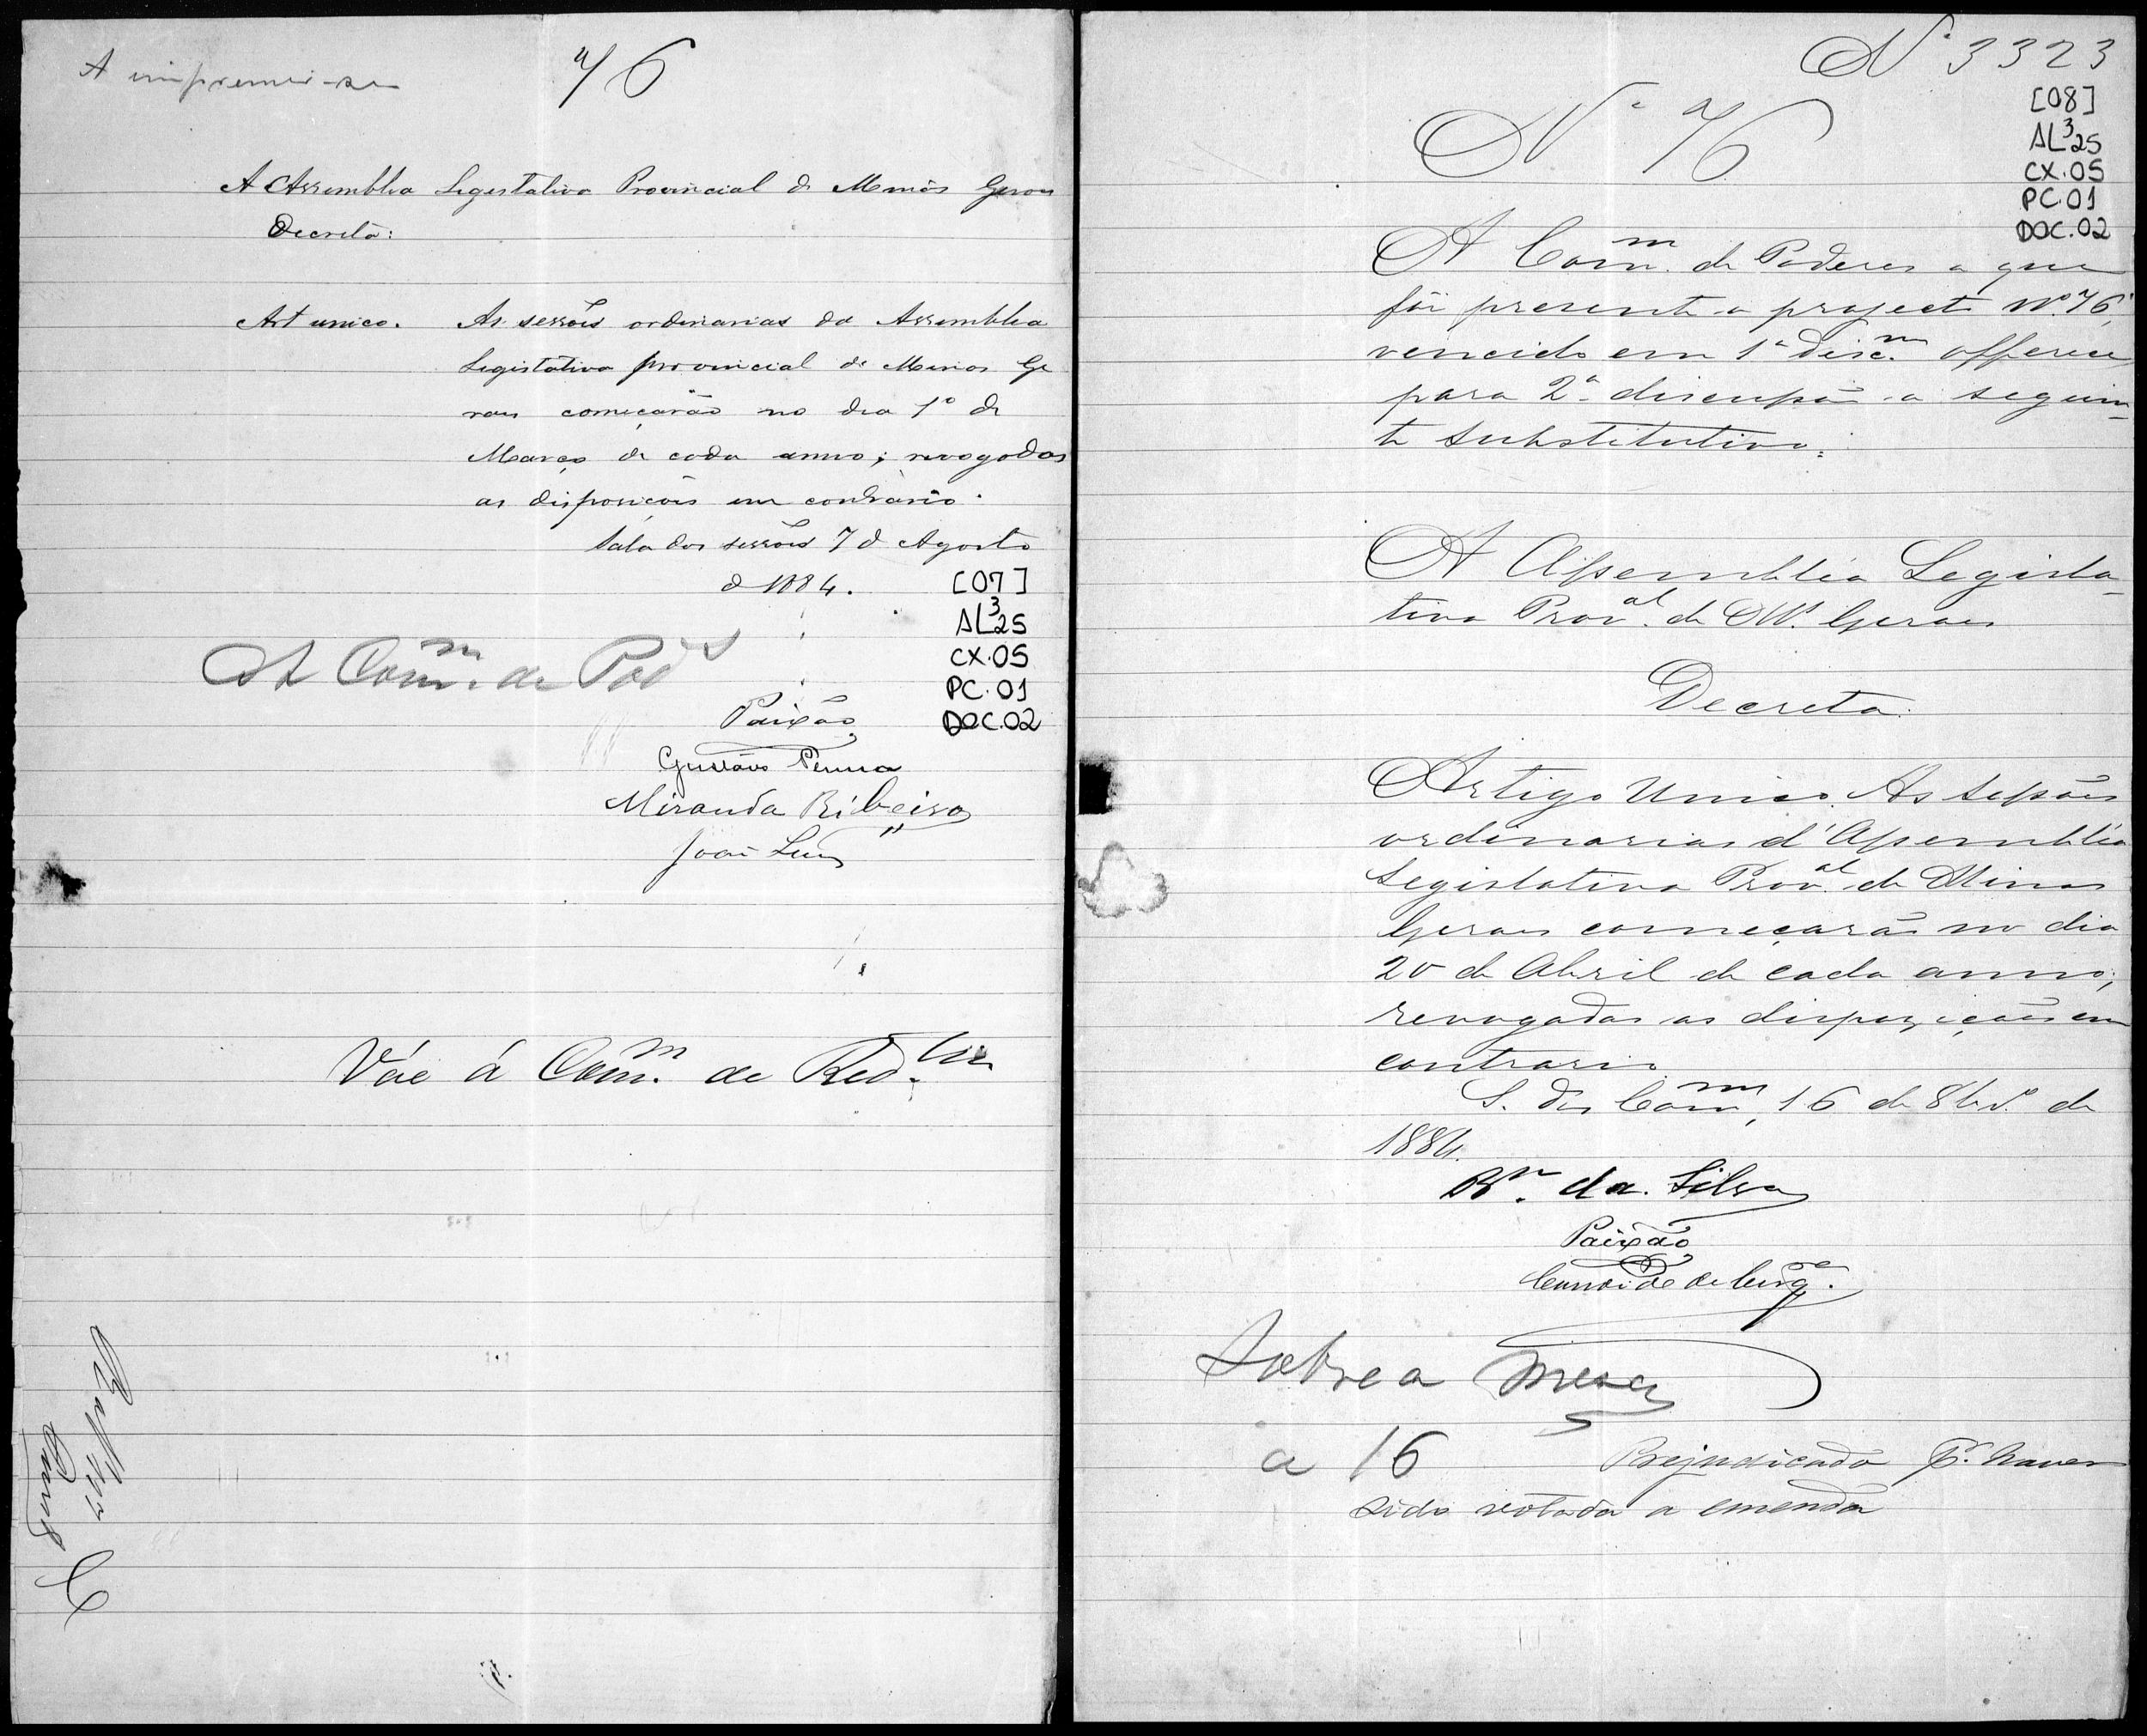 A imprimir-se
76
A Assemblea Legislativa Provincial de Minas Geraes
Decreta:
Art unico. As sessões ordinarias da Assemblea
Legislativa provincial de Minas Ge
raes começarão no dia 1º de
Março de cada anno; revogadas
as disposições em contrario.
Sala das sessões 7 d Agosto
d 1884.
[07]
AL³25
CX.05
PC.01
DOC.02
A Com.m de Pod.s
Paixão
Gustavo Penna
Miranda Ribeiro
João Luis
Váe á Com.m de Red.
Nº 3323
[08]
AL³25
CX.05
PC.01
DOC.02
Nº 76
A Com.m de Poderes a que
foi presente o projecto nº 76,
vencido em 1ª disc.m offerece
para 2ª discussão o seguin
te substitutivo:
A Assembléa Legisla
tiva Prov.al de M. Geraes
Decreta:
Artigo Unico. As sessões
ordinarias d'Assembléa
Legislativa Prov.al de Minas
Geraes começarão no dia
20 de Abril de cada anno;
revogadas as disposições em
contrario.
S. das Com.m, 16 de 8br.º de
1884.
da Silva
Paixão
Sobre a mesa
a 16
Prejudicado p.r haver
sido votada a emenda